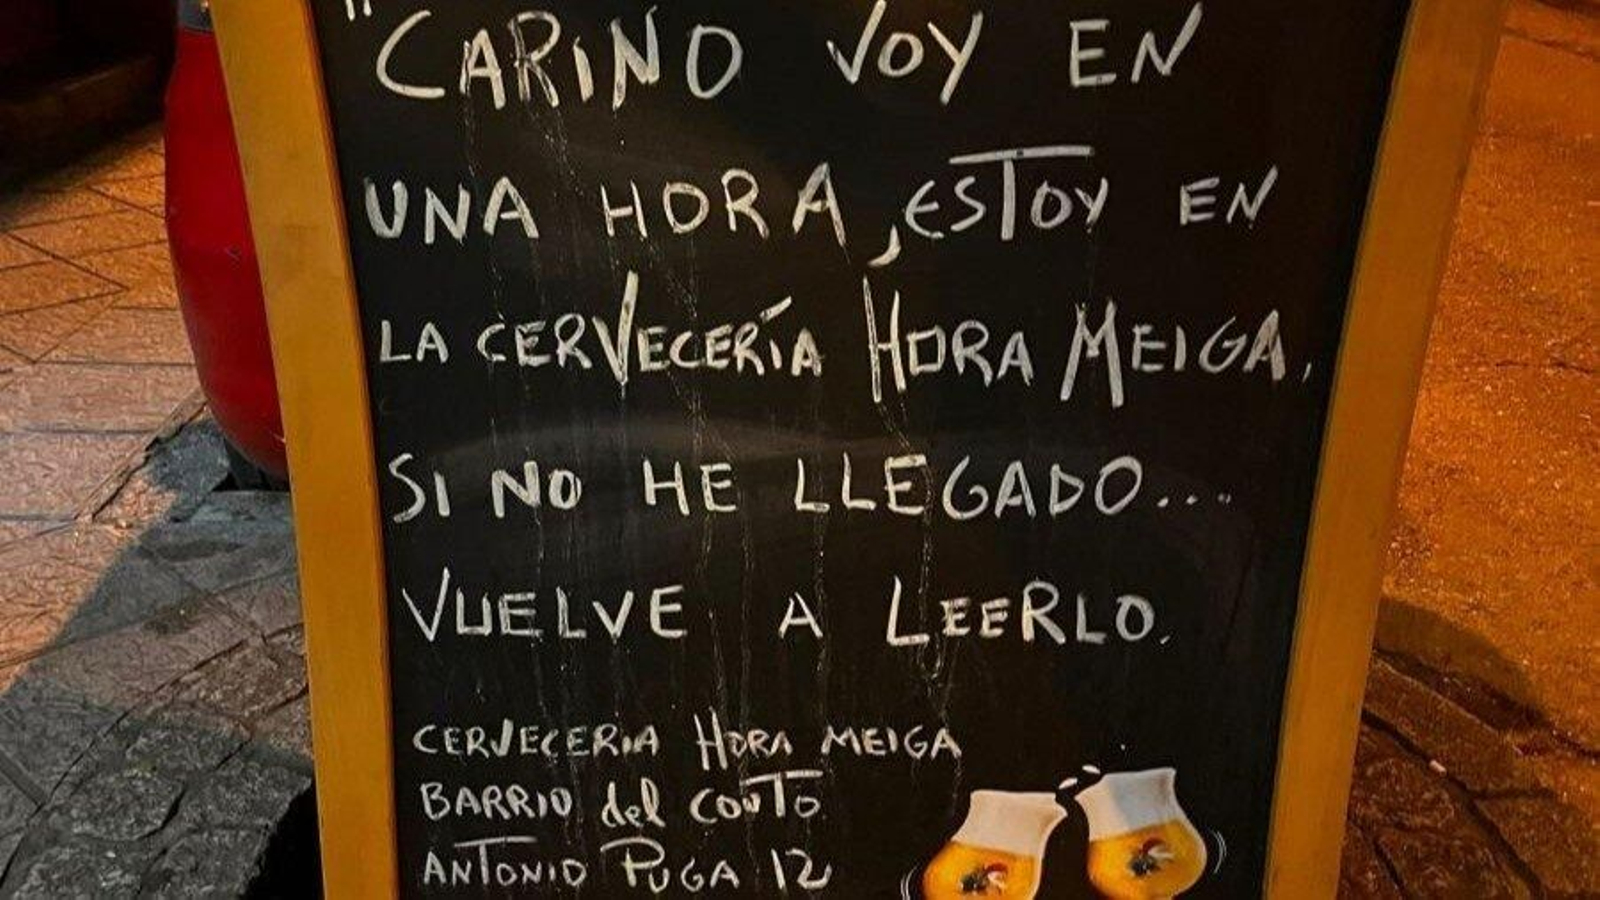 "CARIÑO VOY EN
UNA HORA, ESTOY EN
LA CERVECERÍA HORA MEIGA.
SI NO HE LLEGADO....
VUELVE A LEERLO.
CERVECERIA HORA MEIGA
BARRIO del COUTO
ANTONIO PUGA 12